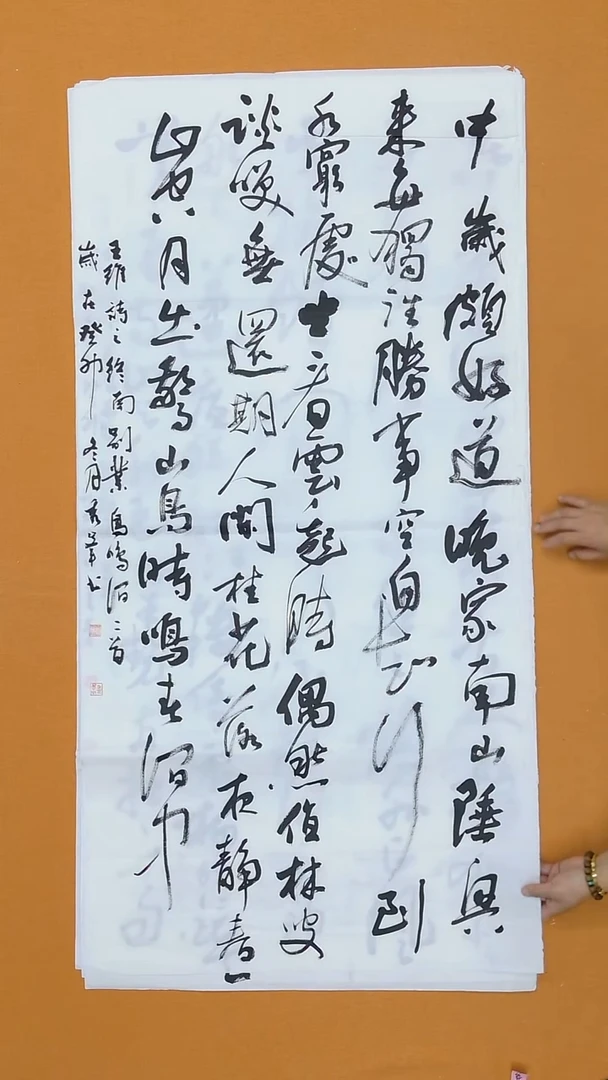 中歲頗好道晚家南山陲興
來每獨往勝事空自知行到
水窮處坐看雲起時偶然值林叟
談笑無還期人閒桂花落夜静春
山空月出驚山鳥時鳴春澗中
王維詩之終南別業鳥鳴澗二首
歲在癸卯冬月书